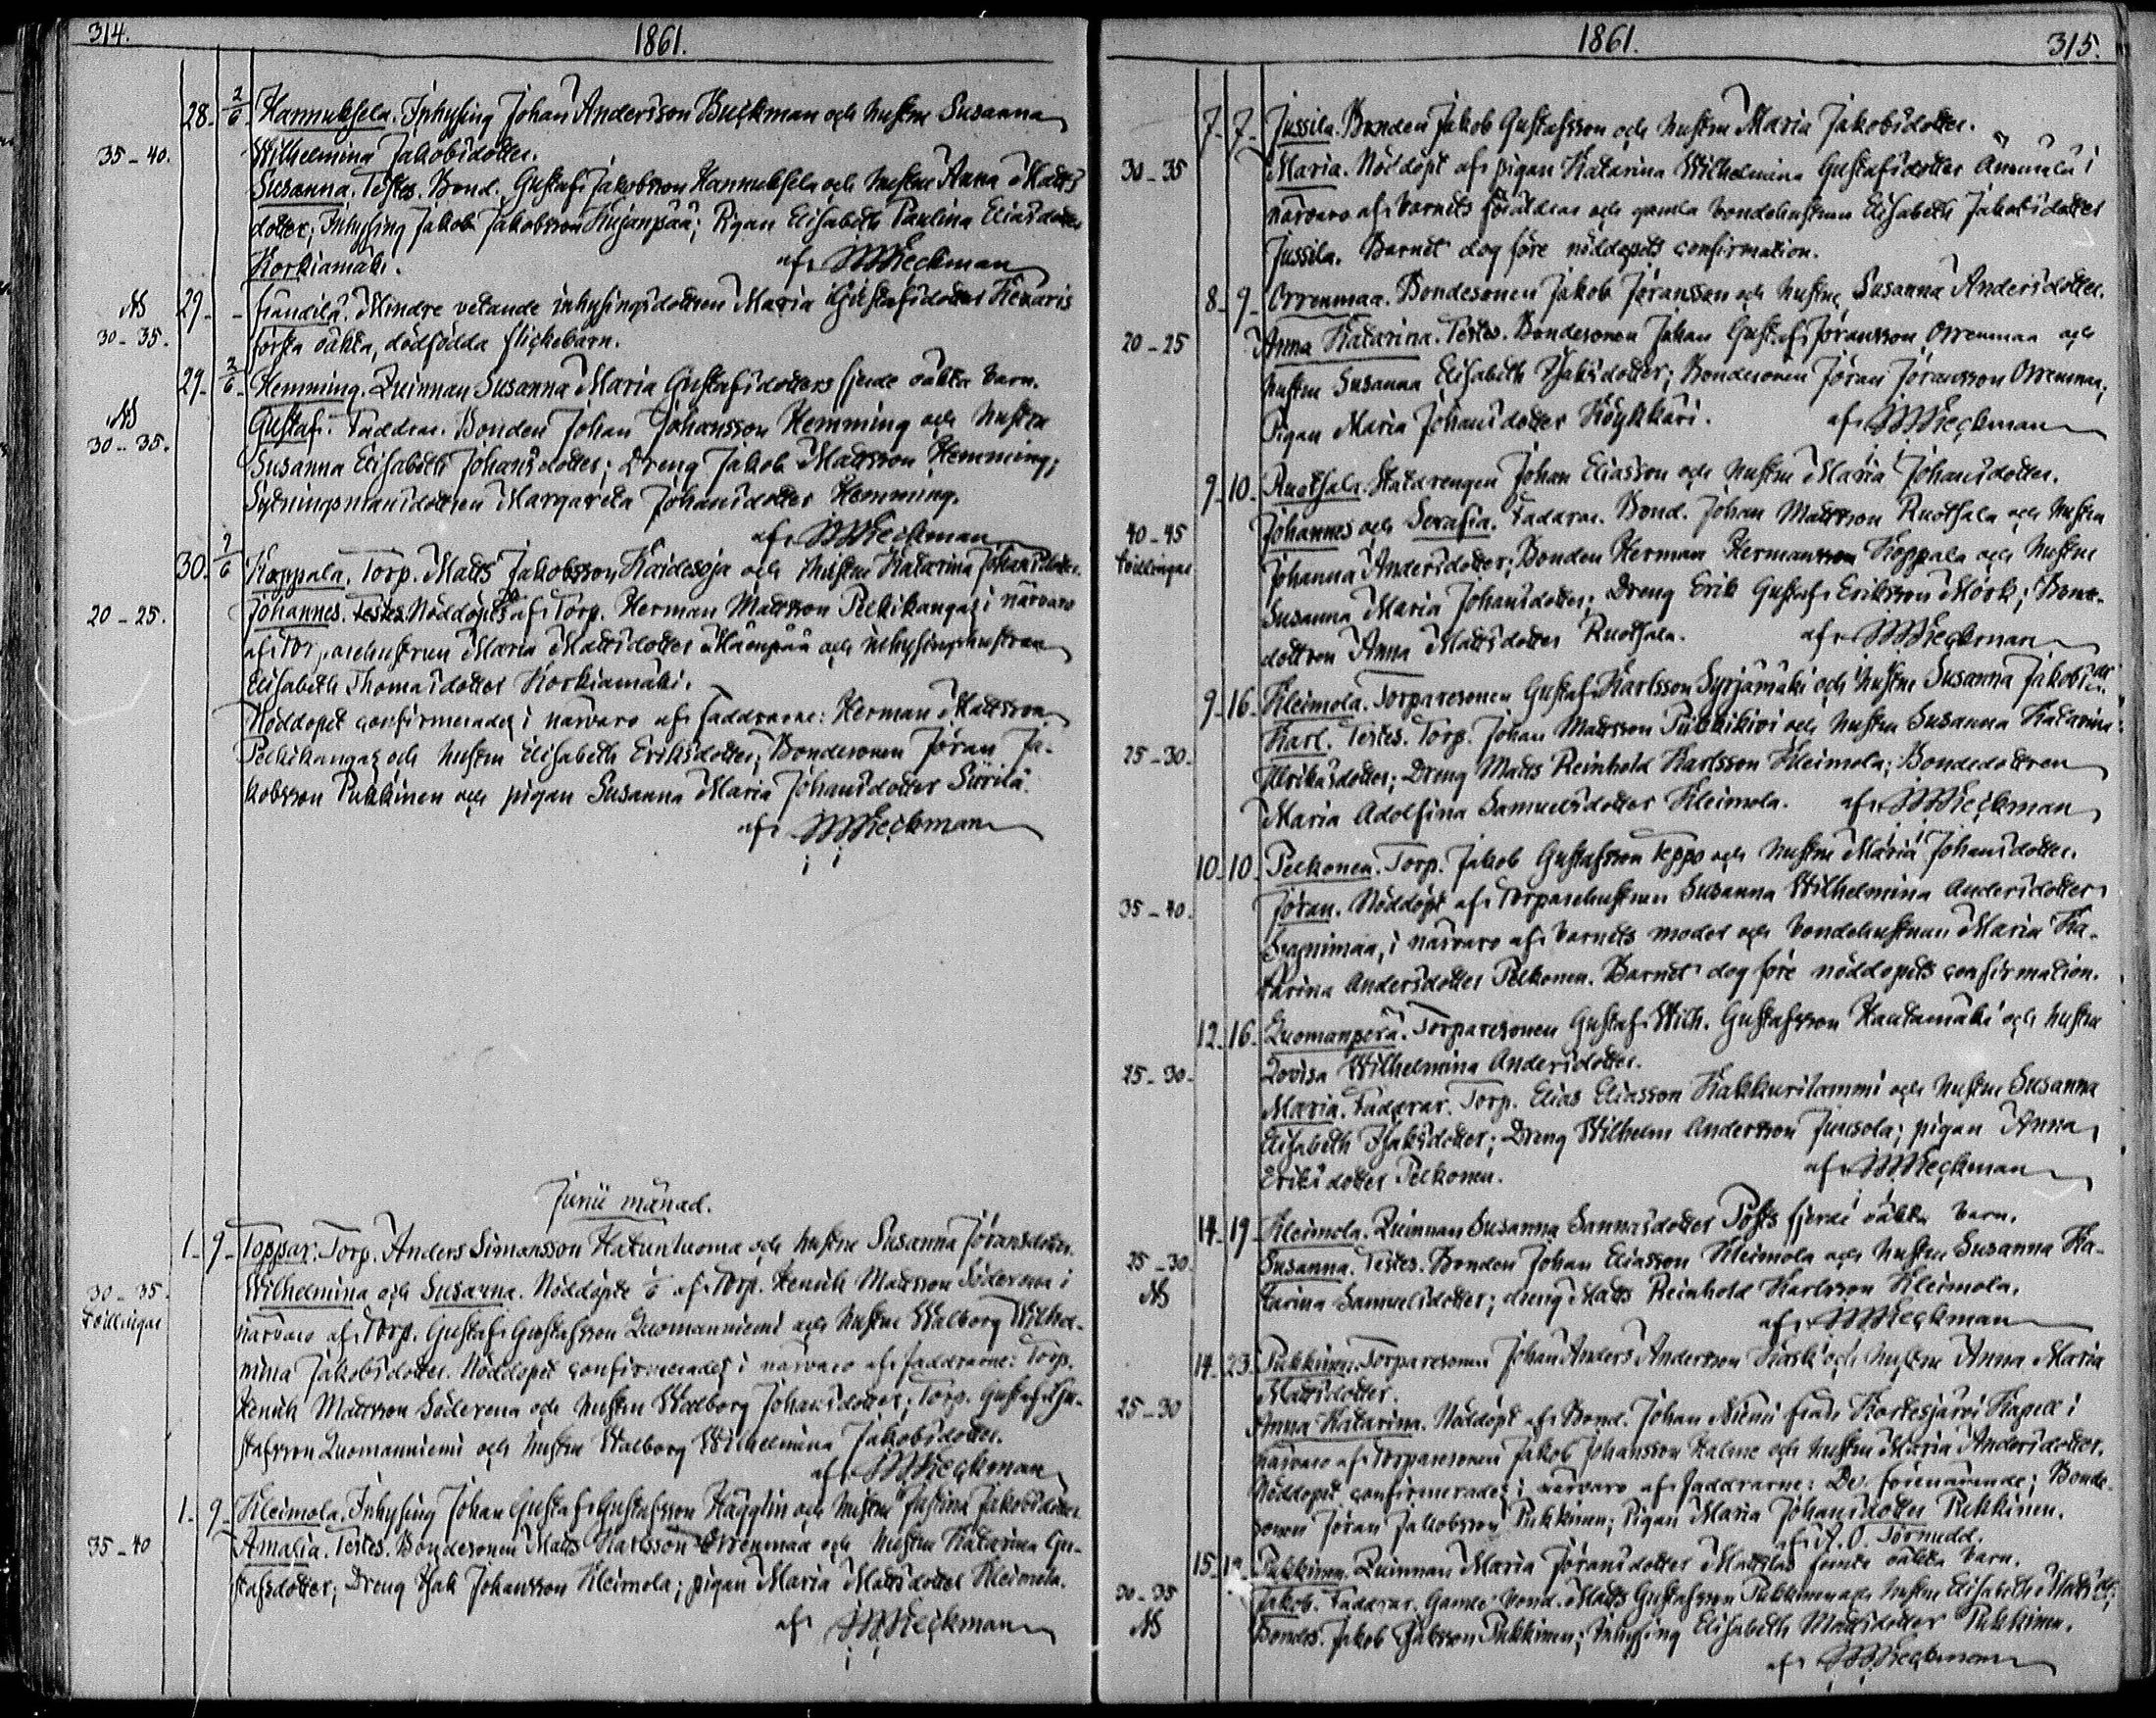 314.
1861.
28. 2/6 Hannuksela. Inhysing Johan Andersson Buckman och hustru Susanna
35-40. Wilhelmina Jakobsdotter.
Susanna. Testes. Bond. Gustaf Jakobsson Hannuksela och hustru Anna Matts
dotter; Inhysing Jakob Jakobsson Kujanpää; Pigan Elisabeth Paulina Eliasdotter
Korkiamäki. af
29. - Mindre vetande inhysingsdottren Maria Gustafsdotter
30-35. första oäkta, dödfödda flickebarn.
29. 2/6 Hemming. Quinnan Susanna Maria Gustafsdotters fjerde oäkta barn.
30-35. Gustaf. Faddrar. Bonden Johan Johansson Hemming och hustru
Susanna Elisabeth Johansdotter; Dreng Jakob Mattsson Hemming;
Sytningsmansdottren Margareta Johansdotter Hemming.
af
30. 2/6 Koppala. Torp. Matts Jakobsson Kaidesoja och hustru Katarina Johansdotter.
20-25. Johannes. Testes. Nöddöpts af Torp. Herman Mattsson Pelkikangas i närvaro
af Torparehustrun Maria Mattsdotter Mäenpää och inhysingshustrun
Elisabeth Thomasdotter Korkiamäki.
Nöddopet confirmerades i närvaro af faddrarne: Herman Mattsson
Pelkikangas och hustru Elisabeth Eriksdotter; Bondesonen Jöran Ja-
kobsson Pukkinen och pigan Susanna Maria Johansdotter Siirilä.
af
Junii månad.
1. 9. Toppar. Torp. Anders Simonsson Hakunluoma och hustru Susanna Jöransdotter.
30-35. Wilhelmina och Susanna. Nöddöpte 1/6 af Torp. Henrik Mattsson Söderena i
Tvillingar närvaro af Torp. Gustaf Gustafsson Luomanniemi och hustru Walborg Wilhel-
mina Jakobsdotter. Nöddopet confirmerades i närvaro af faddrarne: Torp.
Henrik Mattsson Söderena och hustru Walborg Johansdotter; Torp. Gustaf Gu-
stafsson Luomanniemi och hustru Walborg Wilhelmina Jakobsdotter.
af
1. 9. Kleimola. Inhysing Johan Gustaf Gustafsson Hägglin och hustru Justina Jakobsdotter
35-40 Amalia. Testes. Bondesonen Matts Karlsson Orrenmaa och hustru Katarina Gu-
stafsdotter; Dreng Isak Johansson Kleimola; pigan Maria Mattsdotter Kleimola.
af
1861.
315.
7. 7. Jussila. Bonden Jakob Gustafsson och hustru Maria Jakobsdotter.
30-35 Maria. Nöddöpt af pigan Katarina Wilhelmina Gustafsdotter Änämälä i
närvaro af barnets föräldrar och gamla bondehustrun Elisabeth Jakobsdotter
Jussila. Barnet dog före nöddopets confirmation.
8. 9. Orrenmaa. Bondesonen Jakob Jöransson och hustru Susanna Andersdotter.
20-25 Anna Katarina. Testes. Bondesonen Johan Gustaf Jöransson Orrenmaa och
hustru Susanna Elisabeth Isaksdotter; Bondesonen Jöran Jöransson Orrenmaa;
Pigan Maria Johansdotter Köykkäri. af
9. 10. Ruotsala. Statdrengen Johan Eliasson och hustru Maria Johansdotter.
40-45 Johannes och Serafia. Faddrar. Bond. Johan Mattsson Ruotsala och hustru
Tvillingar Johanna Andersdotter; Bonden Herman Hermansson Koppala och hustru
Susanna Maria Johansdotter; Dreng Erik Gustaf Eriksson Mörk; Bonde-
dottren Anna Mattsdotter Ruotsala. af
9. 16. Kleimola. Torparesonen Gustaf Karlsson Syrjämäki och hustru Susanna Jakobsdtr.
25-30. Karl. Testes. Torp. Johan Mattsson Piikkikivi och hustru Susanna Katarina
Ulrikasdotter; Dreng Matts Reinhold Karlsson Kleimola; Bondedottren
Maria Adolfina Samuelsdotter Kleimola. af
10. 10. Pelkonen. Torp. Jakob Gustafsson Teppo och hustru Maria Johansdotter.
35-40. Jöran. Nöddöpt af Torparehustrun Susanna Wilhelmina Andersdotter
i närvaro af barnets moder och bondehustrun Maria Ka-
tarina Andersdotter Pelkonen. Barnet dog före nöddopets confirmation.
12. 16. Luomanperä. Torparesonen Gustaf Wilh. Gustafsson Hautamäki och hustru
25-30. Lovisa Wilhelmina Andersdotter.
Maria. Faddrar. Torp. Elias Eliasson Kakkurilammi och hustru Susanna
Elisabeth Isaksdotter; Dreng Wilhelm Andersson Junsola; pigan Anna
Eriksdotter Pelkonen. af
14. 19. Kleimola. Quinnan Susanna Sannasdotter Posts fjerde oäkta barn.
25-30. Susanna. Testes. Bonden Johan Eliasson Kleimola och hustru Susanna Ka-
tarina Samuelsdotter; dreng Matts Reinhold Karlsson Kleimola.
af
14. 23. Pukkinen. Torparesonen Johan Anders Andersson Kask och hustru Anna Maria
Mattsdotter.
25-30 Anna Katarina. Nöddöpt af Bond. Johan Niemi från Kortesjärvi Kapell i
närvaro af Torparesonen Jakob Johansson Halme och hustru Maria Andersdotter.
Nöddopet confirmerades i närvaro af faddrarne: De förenämnde; Bonde-
sonen Jöran Jakobsson Pukkinen; Pigan Maria Johansdotter Pukkinen.
af A. O. Törnudd.
15. Pukkinen. Quinnan Maria Jöransdotter Mattilas femte oäkta barn.
30-35 Jakob. Faddrar. Gamle bond. Matts Gustafsson Pukkinen och hustru Elisabeth Matsdtr;
Bondes. Jakob Pukkinen; Inhysing Elisabeth Mattsdotter Pukkinen.
af